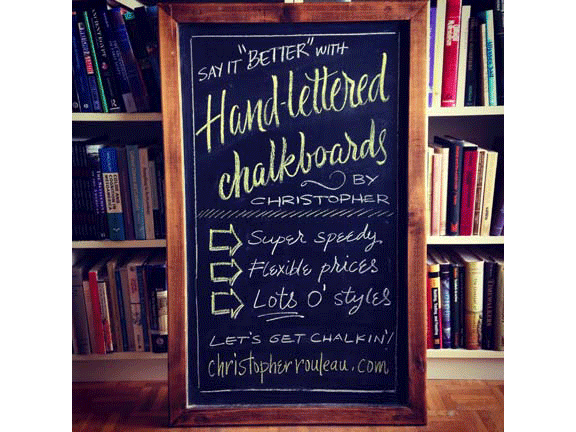 SAY IT "BETTER" WITH
Hand-lettered
chalkboards
BY
CHRISTOPHER
Super speedy
Flexible prices
Lots O' styles
LET'S GET CHALKIN'!
christopherrouleau.com